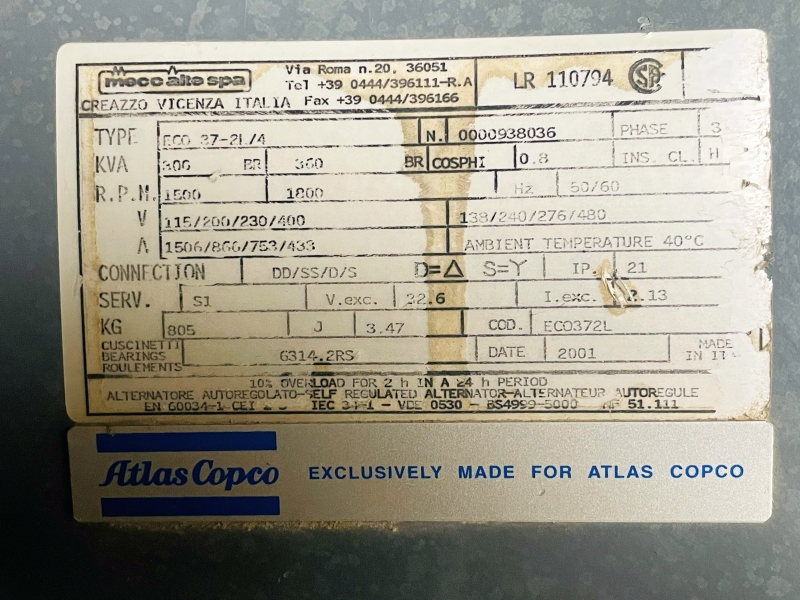 mecc alte spa
Via Roma n.20, 36051
Tel +39 0444/396111-R.A
CREAZZO VICENZA ITALIA Fax +39 0444/396166
LR 110794 SP
TYPE ECO 37-2L/4 N. 0000938036 PHASE 3
KVA 306 BR 360 BR COSPHI 0.8 INS. CL. H
R.P.M. 1500 1800 Hz 50/60
V 115/200/230/400 138/240/276/480
A 1506/866/753/433 AMBIENT TEMPERATURE 40°C
CONNECTION DD/SS/D/S D=Δ S=Y IP. 21
SERV. S1 V.exc. 32.6 I.exc. .13
KG 805 J 3.47 COD. ECO372L
CUSCINETTI
BEARINGS
ROULEMENTS
G314.2RS DATE 2001 MADE
IN
10% OVERLOAD FOR 2 h IN A 24 h PERIOD
ALTERNATORE AUTOREGOLATO-SELF REGULATED ALTERNATOR-ALTERNATEUR AUTOREGULE
EN 60034-1 CEI IEC 34-1 - VDE 0530 - BS4999-5000 NF 51.111
Atlas Copco EXCLUSIVELY MADE FOR ATLAS COPCO